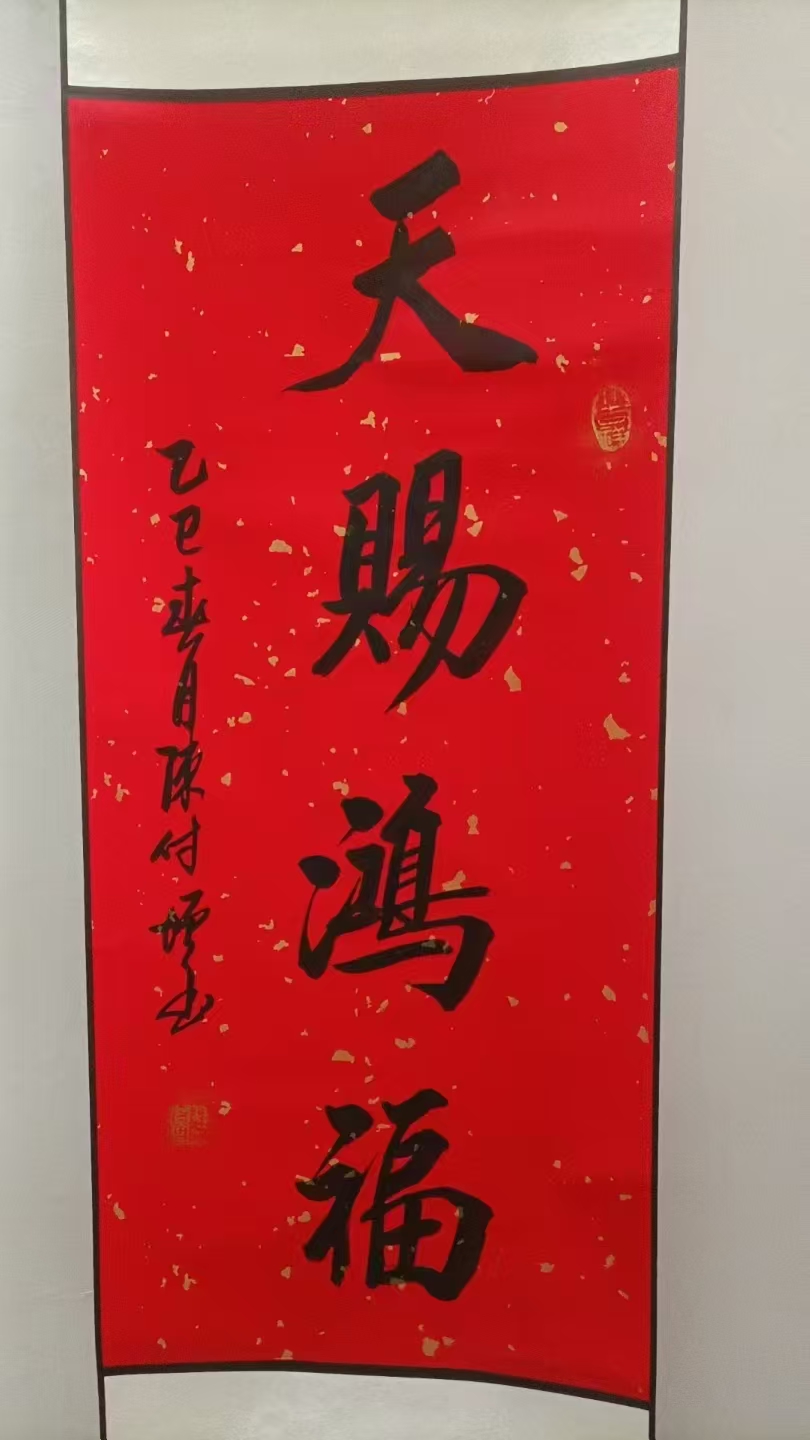 天賜鴻福
乙巳春月陳付書